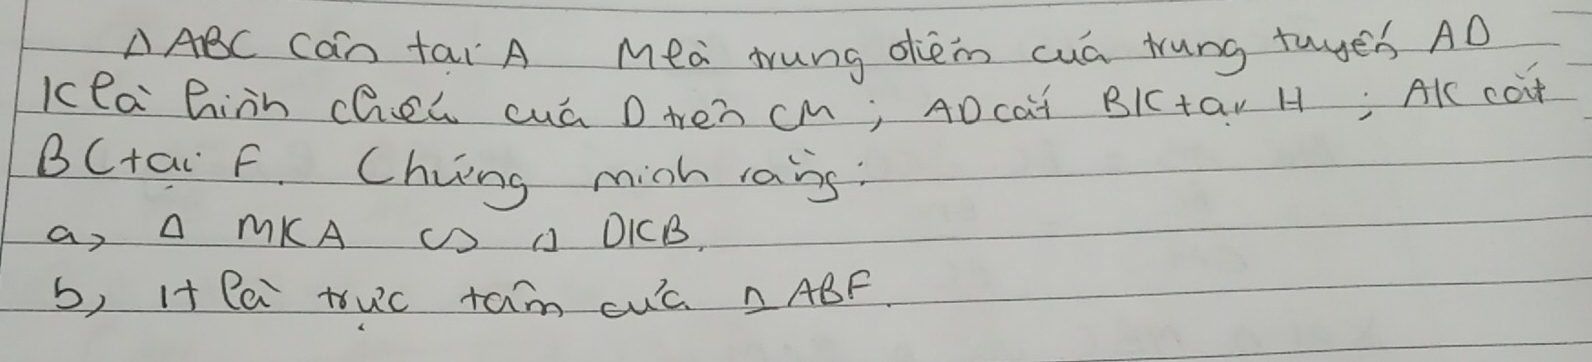 Δ ABC cân tại A M là trung điểm của trung tuyến AD
K là hình chiếu của D trên CM ; AD cắt BK tại H ; AK cắt
BC tại F. Chứng minh rằng:
a, Δ MKA ∽ Δ DKB.
b, H là trực tâm của Δ ABF.